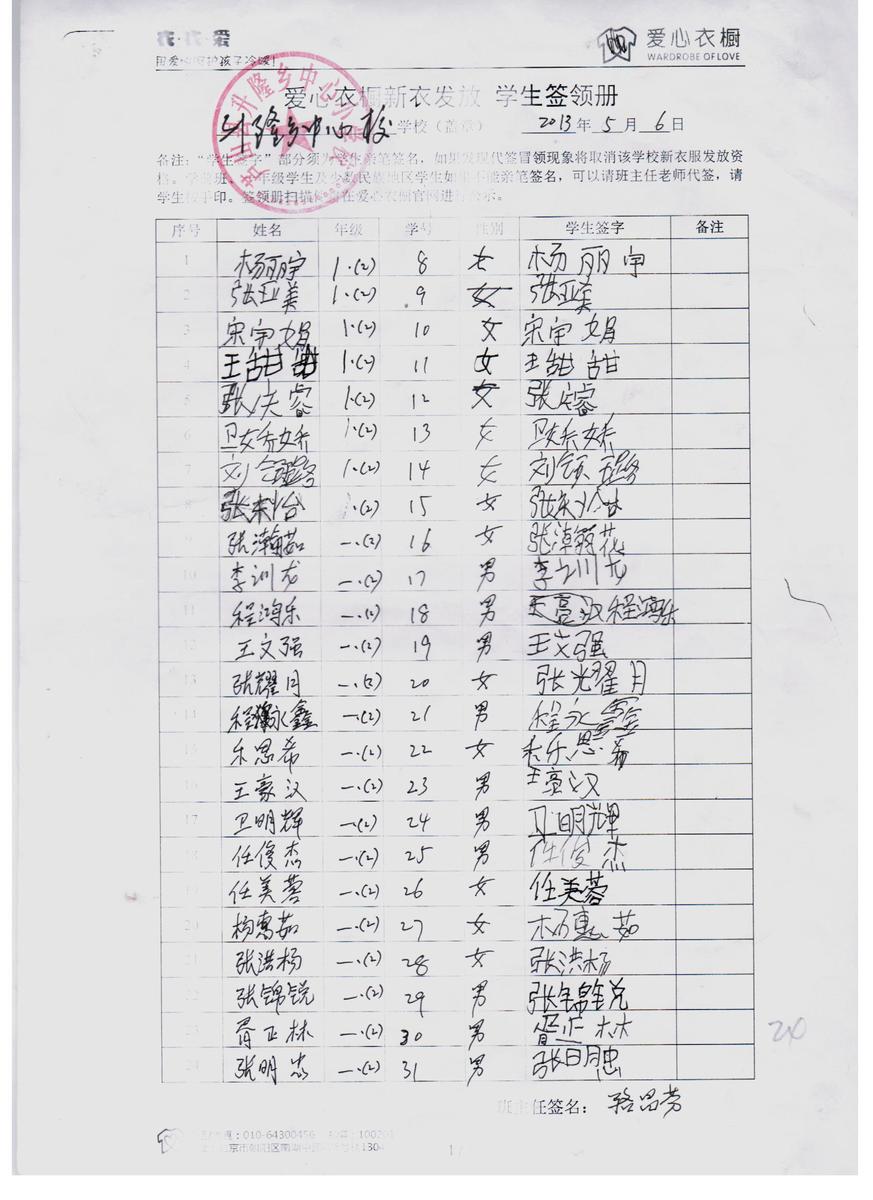 爱心衣橱
WARDROBE OF LOVE
用爱心呵护孩子冷暖!
爱心衣橱新衣发放 学生签领册
升隆乡中心校 学校（盖章） 2013年5月6日
备注："学生签字"部分须为学生亲笔签名，如果发现代签冒领现象将取消该学校新衣服发放资
格。学前班、一年级学生及少数民族地区学生如果不能亲笔签名，可以请班主任老师代签，请
学生按手印。签领册扫描件将在爱心衣橱官网进行公示。
序号 姓名 年级 学号 性别 学生签字 备注
1 杨丽宇 1.(2) 8 女 杨丽宇
2 张亚美 1.(2) 9 女 张亚美
3 宋宇娟 1.(2) 10 女 宋宇娟
4 王甜甜 1.(2) 11 女 王甜甜
5 张庆睿 1.(2) 12 女 张睿
6 卫娇娇 1.(2) 13 女 卫娇娇
7 刘 1.(2) 14 女 刘
8 张 1.(2) 15 女 张
9 张瀚茹 一.(2) 16 女 张
10 李训龙 一.(2) 17 男 李训龙
11 程鸿乐 一.(2) 18 男 程鸿乐
12 王文强 一.(2) 19 男 王文强
13 张耀月 一.(2) 20 女 张耀月
14 程永鑫 一.(2) 21 男 程永鑫
15 乐思希 一.(2) 22 女 乐思希
16 王豪汉 一.(2) 23 男 王汉
17 卫明辉 一.(2) 24 男 卫明辉
18 任俊杰 一.(2) 25 男 任俊杰
19 任美蓉 一.(2) 26 女 任美蓉
20 杨惠茹 一.(2) 27 女 杨惠茹
21 张洪杨 一.(2) 28 女 张洪杨
22 张锦锐 一.(2) 29 男 张锦锐
23 胥正林 一.(2) 30 男 胥正林
24 张明忠 一.(2) 31 男 张明忠
24
班主任签名： 骆昌芳
：010-64300456
1